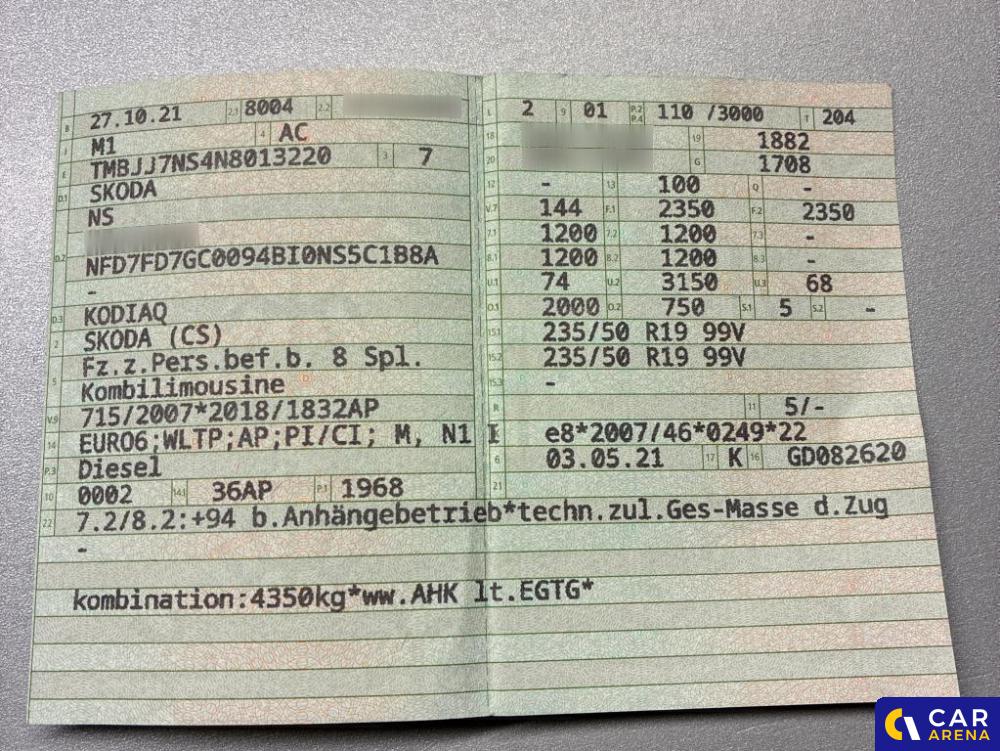 B 27.10.21 2.1 8004 2.2
J M1 4 AC
E TMBJJ7NS4N8013220 3 7
D.1 SKODA
NS
D.2 NFD7FD7GC0094BI0NS5C1B8A
-
D.3 KODIAQ
2 SKODA (CS)
5 Fz.z.Pers.bef.b. 8 Spl.
Kombilimousine
V.9 715/2007*2018/1832AP
14 EURO6;WLTP;AP;PI/CI; M, N1 I
P.3 Diesel
10 0002 14.1 36AP P.1 1968
L 2 9 01 P.2 P.4 110 /3000 T 204
18 19 1882
20 G 1708
12 - 13 100 Q -
V.7 144 F.1 2350 F.2 2350
7.1 1200 7.2 1200 7.3 -
8.1 1200 8.2 1200 8.3 -
U.1 74 U.2 3150 U.3 68
O.1 2000 O.2 750 S.1 5 S.2 -
15.1 235/50 R19 99V
15.2 235/50 R19 99V
15.3 -
R 11 5/-
e8*2007/46*0249*22
6 03.05.21 17 K 16 GD082620
21
22 7.2/8.2:+94 b.Anhängebetrieb*techn.zul.Ges-Masse d.Zug
-
kombination:4350kg*ww.AHK lt.EGTG*
CAR
ARENA